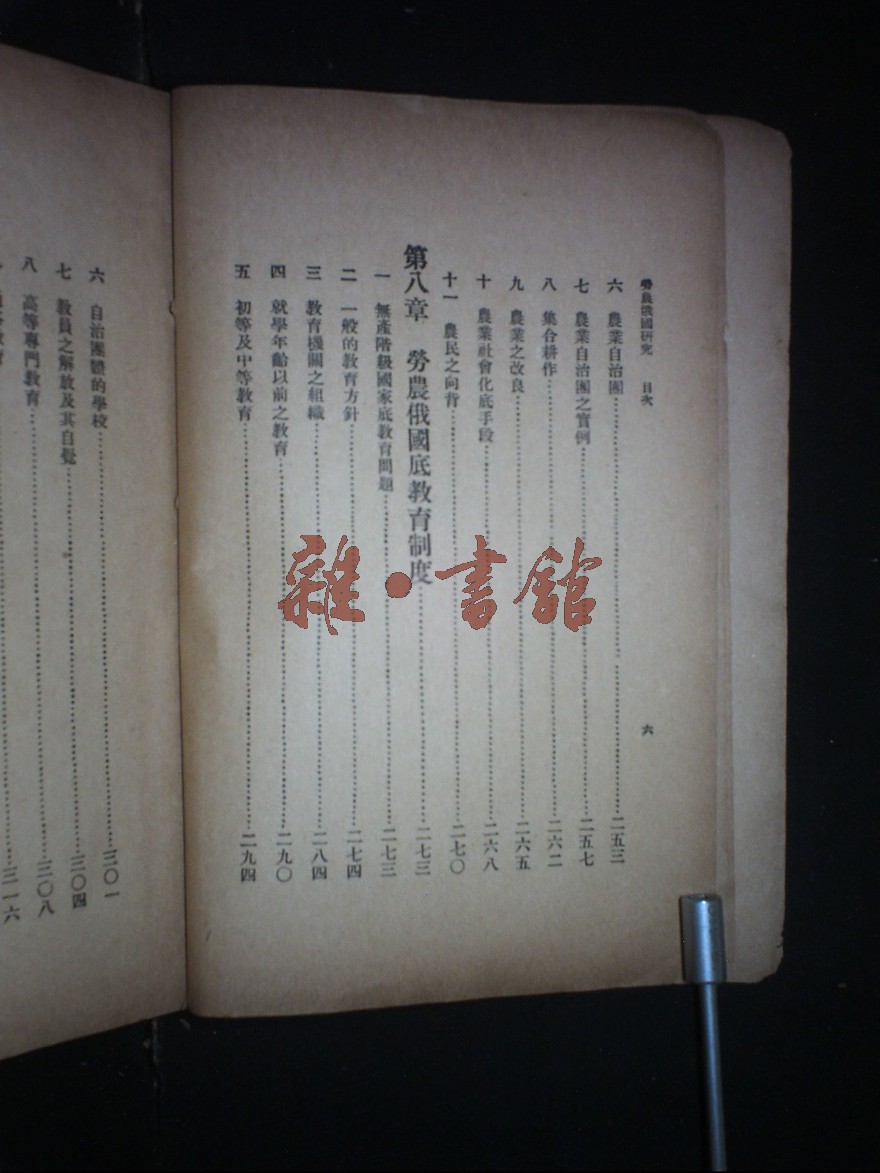 勞農俄國研究　目次　六
六　農業自治團……二五三
七　農業自治團之實例……二五七
八　集合耕作……二六二
九　農業之改良……二六五
十　農業社會化底手段……二六八
十一　農民之向背……二七〇
第八章　勞農俄國底教育制度……二七三
一　無產階級國家底教育問題……二七三
二　一般的教育方針……二七四
三　教育機關之組織……二八四
四　就學年齡以前之教育……二九〇
五　初等及中等教育……二九四
六　自治團體的學校……三〇一
七　教員之解放及其自覺……三〇四
八　高等專門教育……三〇八
三一六
雜·書館